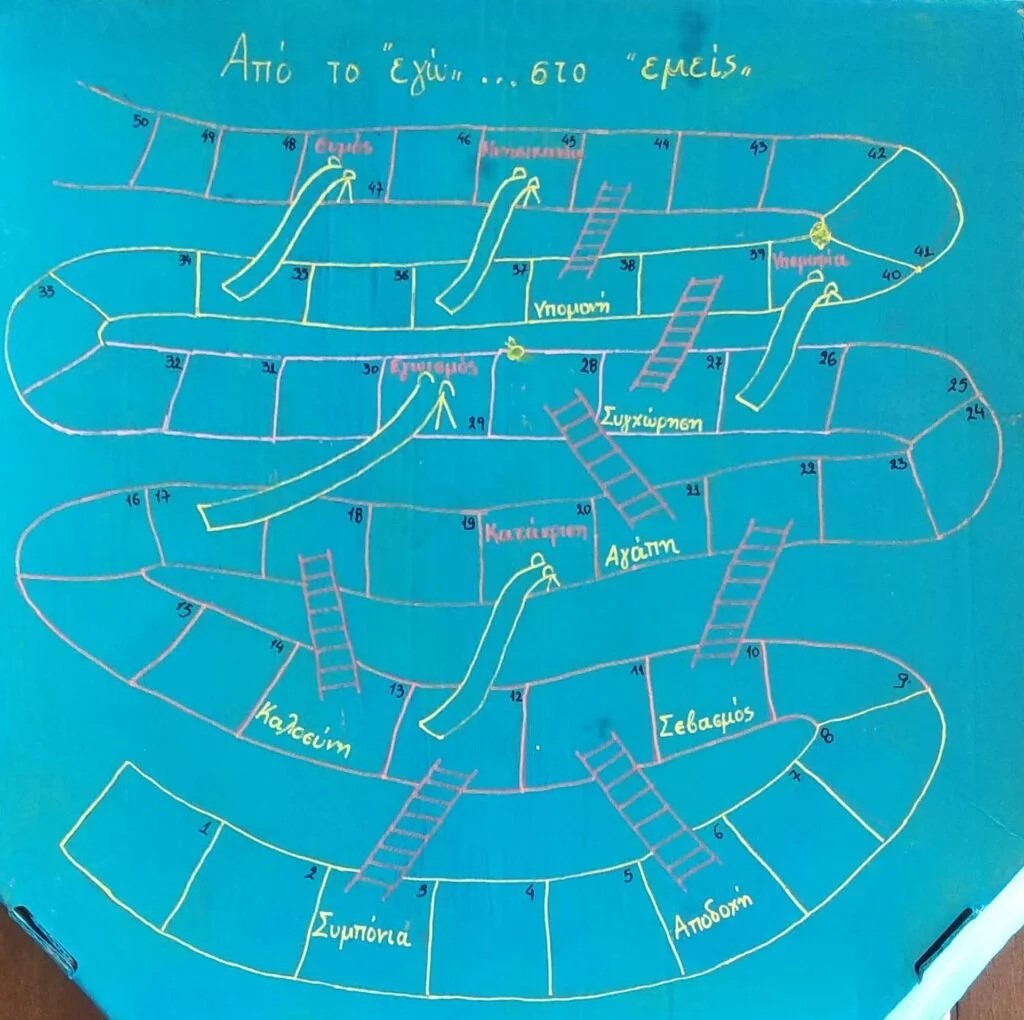 Από το "εγώ" ... στο "εμείς"
50 49 48 Θυμός 47 46 45 44 43 42
41
33 34 35 36 37 38 39 Υπεροψία 40
Υπομονή
32 31 30 Εγωισμός 29 28 27 26 25
Συγχώρηση
24
16 17 18 19 Κατάκριση 20 21 22 23
Αγάπη
15 14 13 12 11 10 9
Καλοσύνη
Σεβασμός
8
1 2 3 4 5 6 7
Συμπόνια
Αποδοχή